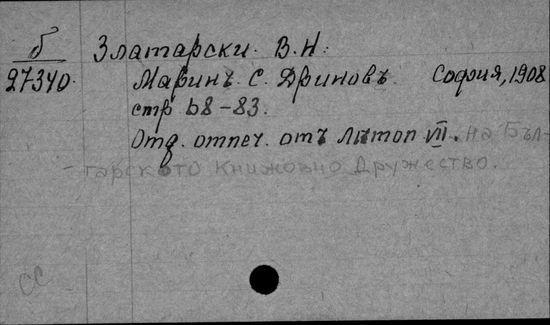 б Златарски. В. Н.
27340. Маринъ. С. Дриновъ. София, 1908
стр 68-83.
Отд. отпеч. отъ Лѣтоп VII. на Бъл-
-гарското Книжовно Дружество.
СС